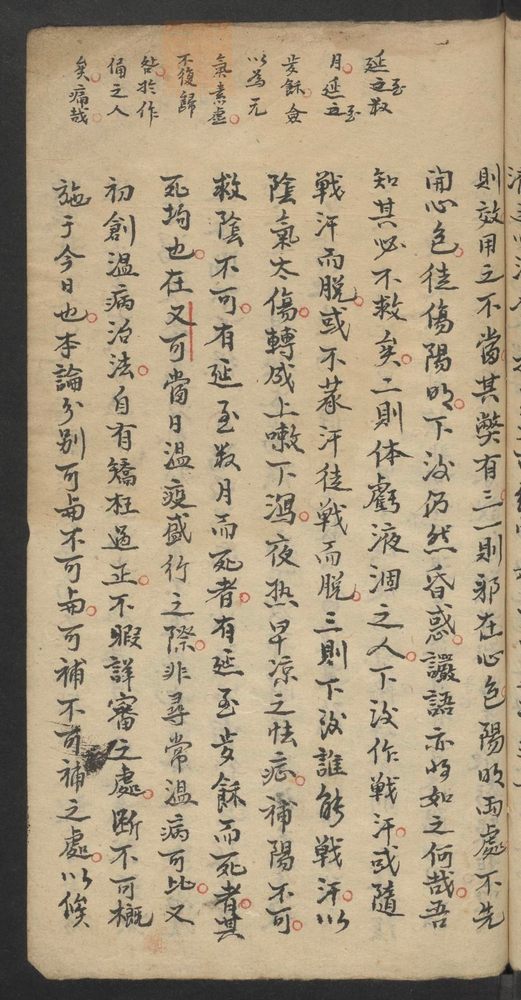 延之至數
月延之至
歲餘僉
以為元
氣素虛
不復歸
咎於作
俑之人
矣痛哉
則效用之不當其弊有三一則邪在心包陽明兩處不先
開心包徒傷陽明下後仍然昏惑譫語亦將如之何哉吾
知其必不救矣二則体虧液涸之人下後作戰汗或隨
戰汗而脫或不蒸汗徒戰而脫三則下後誰能戰汗以
陰氣大傷轉成上嗽下瀉夜热早凉之怯症補陽不可
救陰不可有延至数月而死者有延至歲餘而死者其
死均也在又可當日温疫盛行之際非尋常温病可比又
初創温病治法自有矯枉過正不暇詳審之處断不可概
施于今日也本論分别可與不可與可補不可補之處以俟